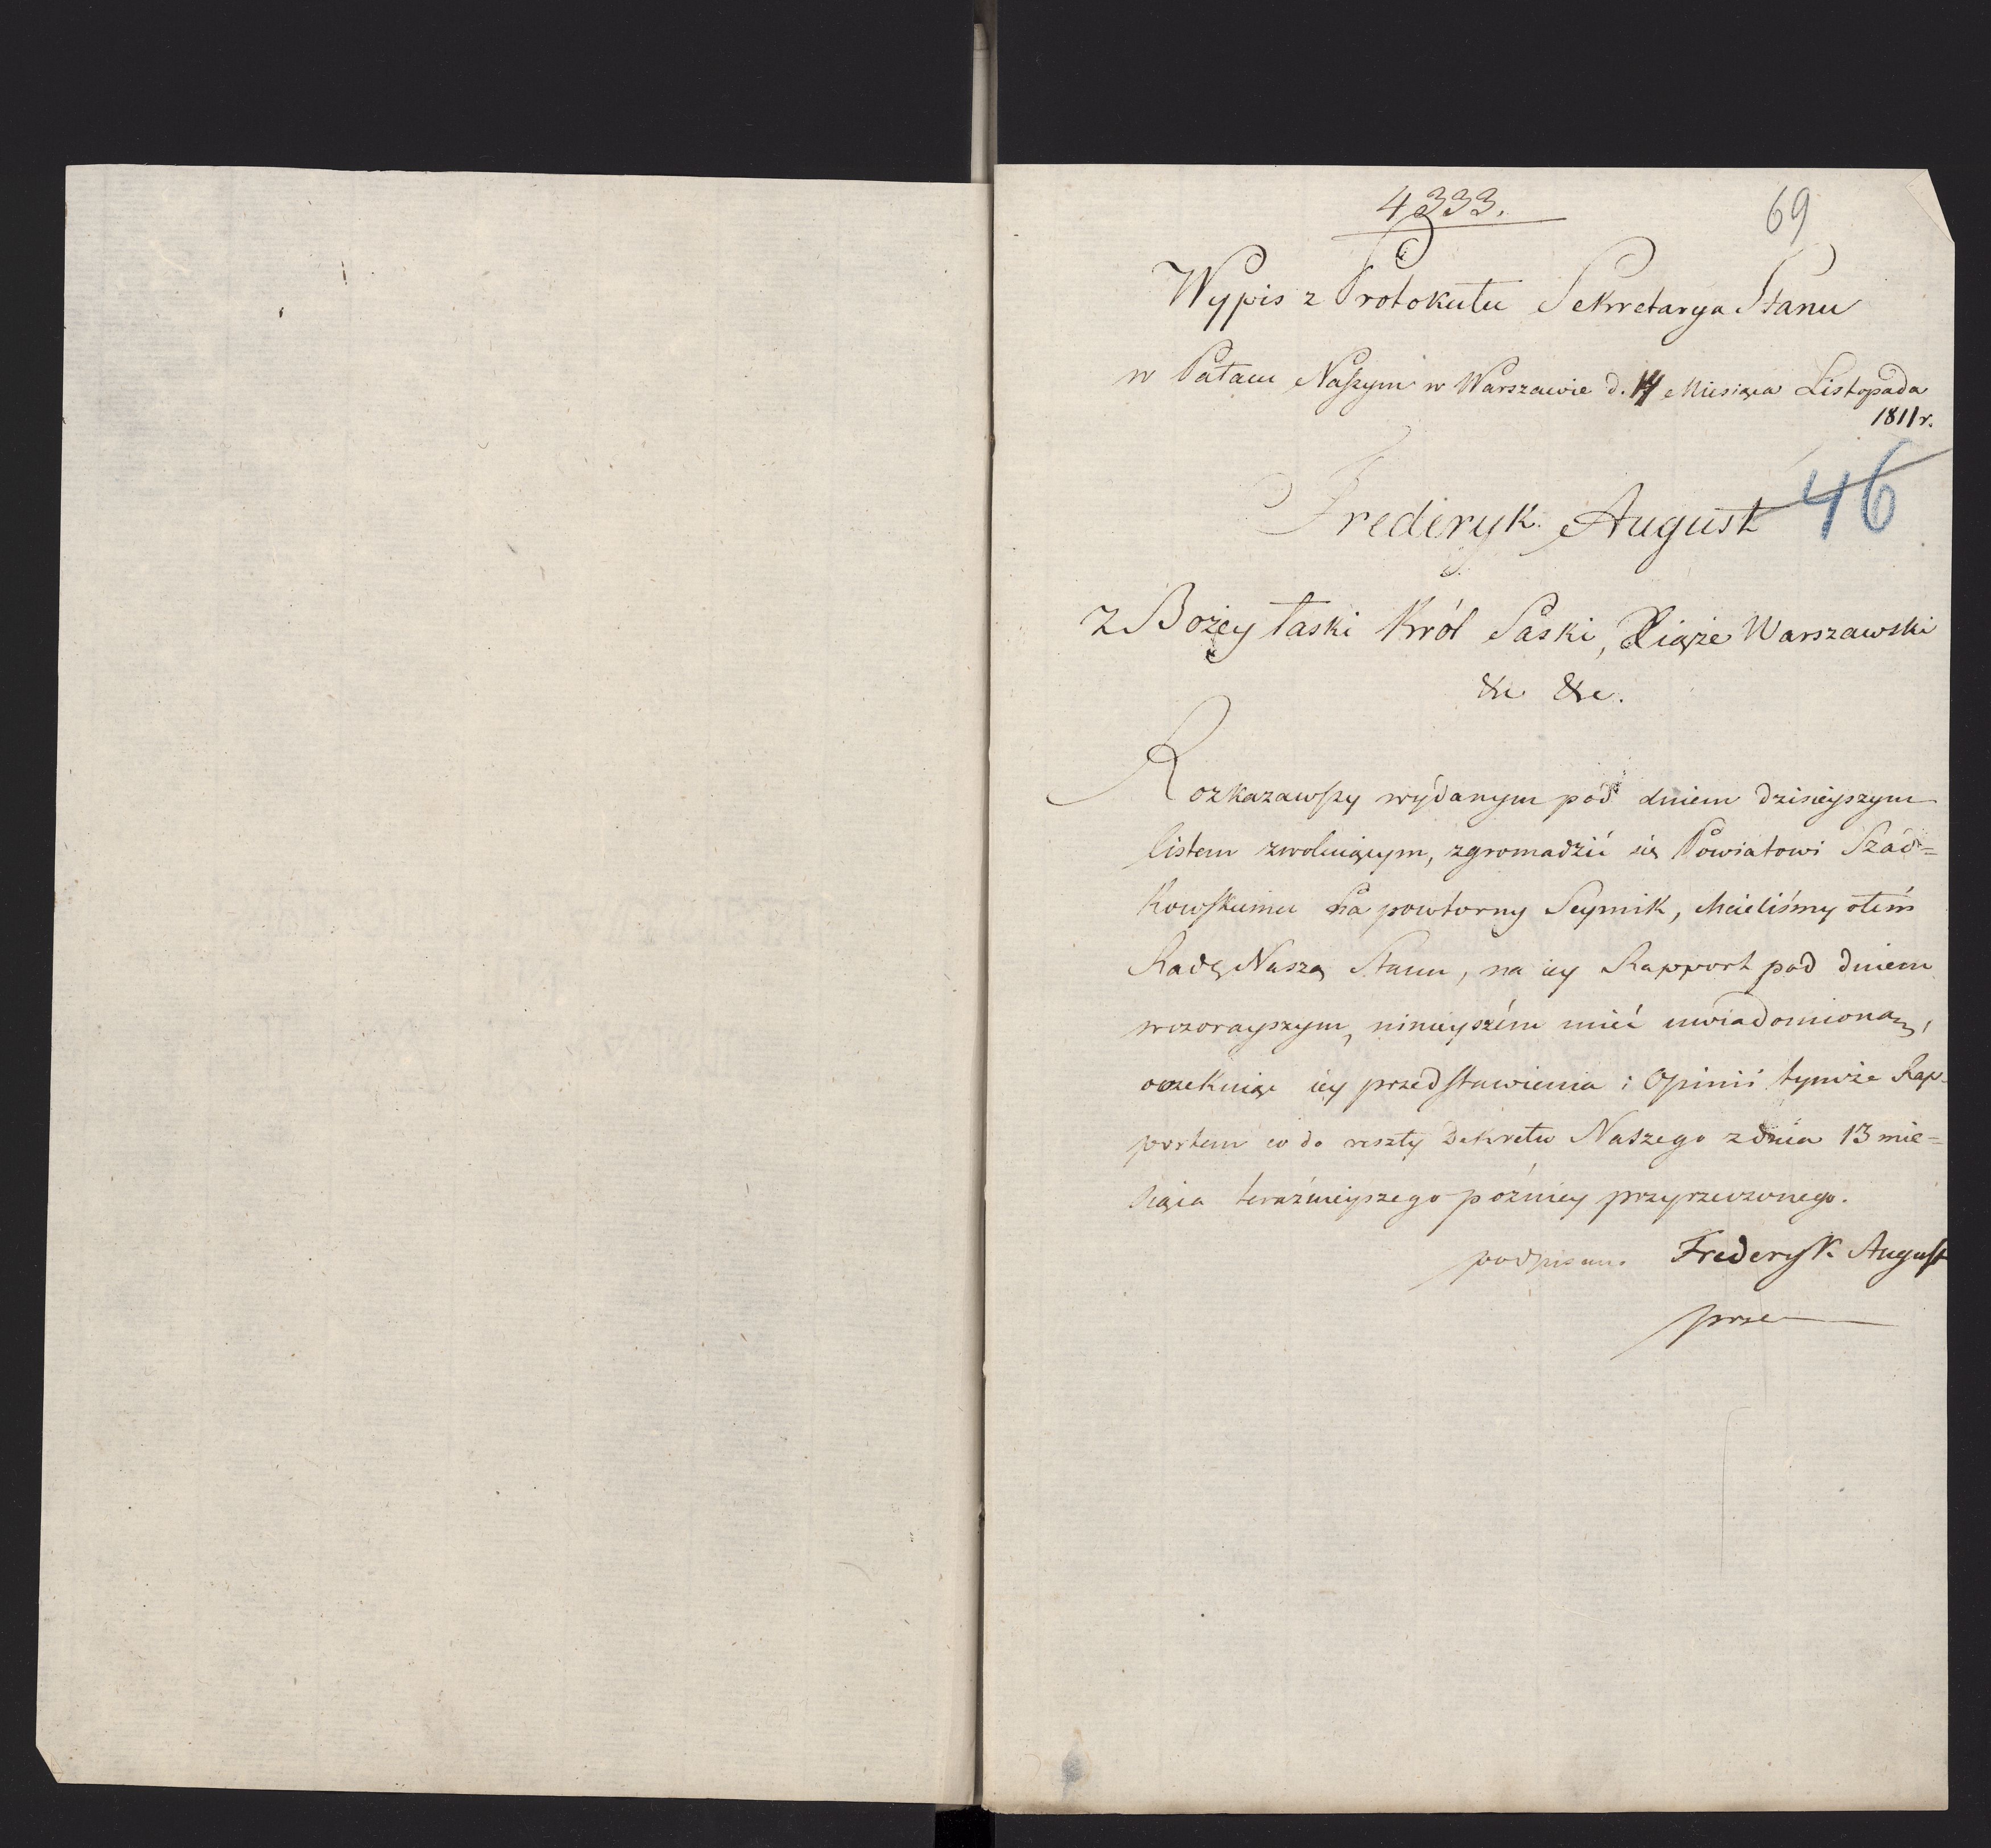 4333.
69
Wypis z Protokułu Sekretarya Stanu
w Pałacu Naszym w Warszawie d. 14 Miesiąca Listopada
1811 r.
46
Frederyk August
z Bożey łaski Król Saski, Xiąże Warszawski
&c &c.
Rozkazawszy wydanym pod dniem dzisieyszym
listem zwołuiącym, zgromadzić się Powiatowi Szad=
kowskiemu na powtorny Seymik, chcieliśmy otém
Radę Naszą Stanu, na iey Rapport pod dniem
wczorayszym, ninieyszém mieć uwiadomioną,
oczekuiąc iey przedstawienia i Opinii tymże Rap-
portem co do reszty Dekretu Naszego z dnia 13 mie=
siąca teraźnieyszego późniey przyrzeczonego.
podpisano Frederyk August
prze